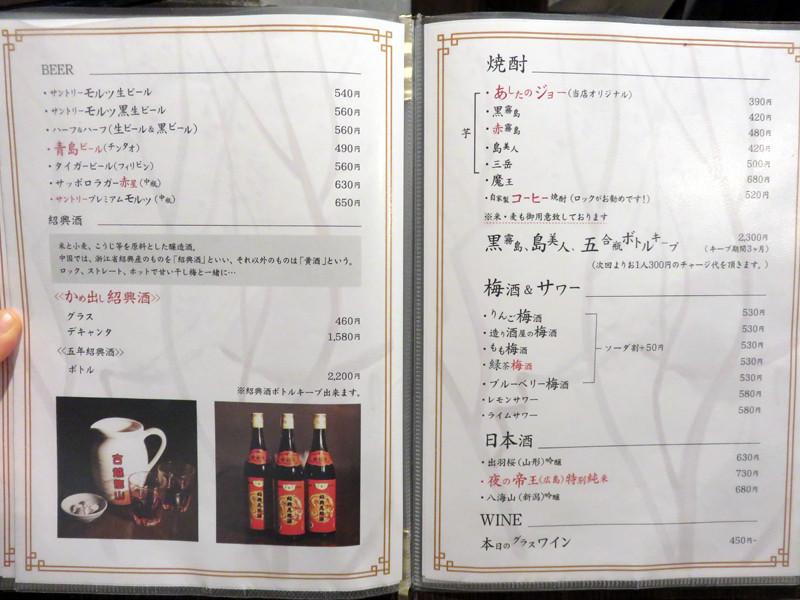 BEER
・サントリーモルツ生ビール 540円
・サントリーモルツ黒生ビール 560円
・ハーフ&ハーフ(生ビール&黒ビール) 560円
・青島ビール(チンタオ) 490円
・タイガービール(フィリピン) 560円
・サッポロラガー赤星(中瓶) 630円
・サントリープレミアムモルツ(中瓶) 650円
紹興酒
米と小麦、こうじ等を原料とした醸造酒。
中国では、浙江省紹興産のものを「紹興酒」といい、それ以外のものは「黄酒」という。
ロック、ストレート、ホットで甘い干し梅と一緒に…
《かめ出し紹興酒》
グラス 460円
デキャンタ 1,580円
《五年紹興酒》
ボトル 2,200円
※紹興酒ボトルキープ出来ます。
古越龍山
焼酎
芋
・あしたのジョー(当店オリジナル) 390円
・黒霧島 420円
・赤霧島 480円
・島美人 420円
・三岳 500円
・魔王 680円
・自家製コーヒー焼酎(ロックがお勧めです!) 520円
※米・麦も御用意致しております
黒霧島、島美人、五合瓶ボトルキープ 2,300円
(キープ期間3ヶ月)
(次回よりお1人300円のチャージ代を頂きます。)
梅酒&サワー
・りんご梅酒 530円
・造り酒屋の梅酒 530円
・もも梅酒 530円
・緑茶梅酒 530円
・ブルーベリー梅酒 530円
ソーダ割+50円
・レモンサワー 580円
・ライムサワー 580円
日本酒
・出羽桜(山形)吟醸 630円
・夜の帝王(広島)特別純米 730円
・八海山(新潟)吟醸 680円
WINE
本日のグラスワイン 450円~